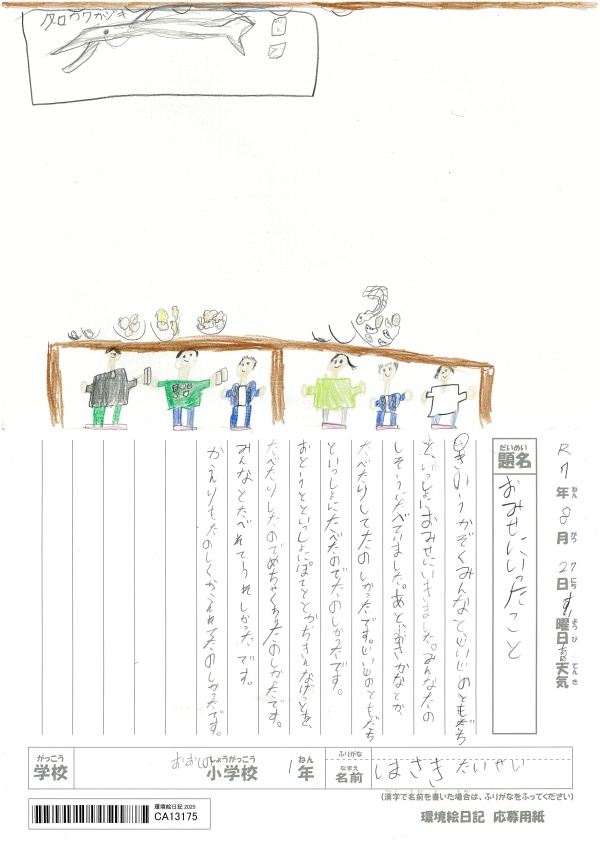 タロウワカジキ
R7年8月27日すい曜日あめ天気
ねん
がつ
にち
よう び
てん き
だいめい
題名
おみせにいったこと
きのうかぞくみんなとじいじのともだち
と、いっしょにおみせにいきました。みんなたの
しそうにたべていました。あと、おさかなとか、
たべたりしてたのしかったです。じいじのともだち
といっしょにたべたのでたのしかったです。
おとうとといっしょにぽてととかちきんなげっとを、
たべたりしたのでめちゃくちゃたのしかたです。
みんなとたべれてうれしかったです。
かえりもたのしくかえれてたのしかったです。
がっこう
学校
おおしの
しょうがっこう
小学校
1年
ねん
ふりがな
なまえ
名前
はさき たいせい
(漢字で名前を書いた場合は、ふりがなをふってください)
環境絵日記 2025
CA13175
環境絵日記 応募用紙